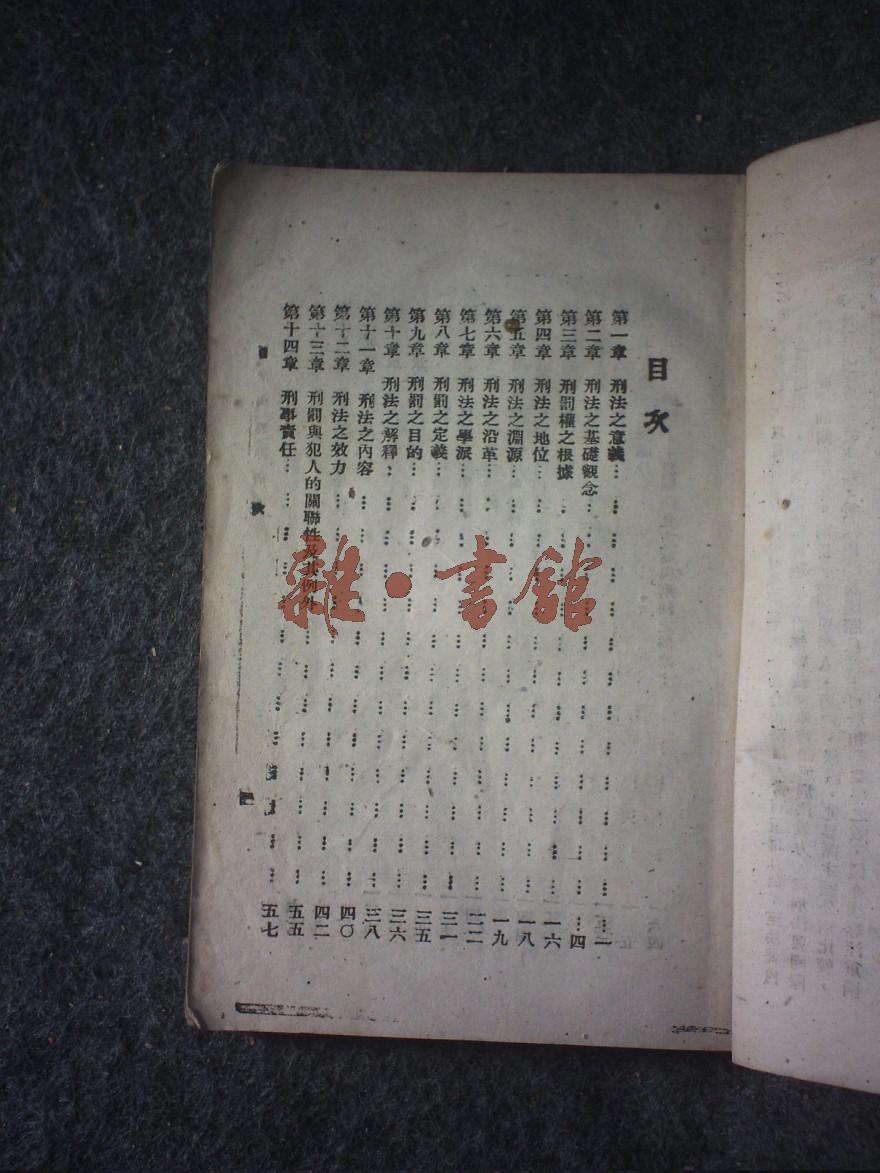 目次
第一章 刑法之意義…一
第二章 刑法之基礎觀念…四
第三章 刑罰權之根據…一六
第四章 刑法之地位…一八
第五章 刑法之淵源…一九
第六章 刑法之沿革…二二
第七章 刑法之學派…三一
第八章 刑罰之定義…三五
第九章 刑罰之目的…三六
第十章 刑法之解釋…三八
第十一章 刑法之內容…四〇
第十二章 刑法之效力…四二
第十三章 刑罰與犯人的關聯性及其例外…五五
第十四章 刑事責任…五七
目
次
一
雜·書館